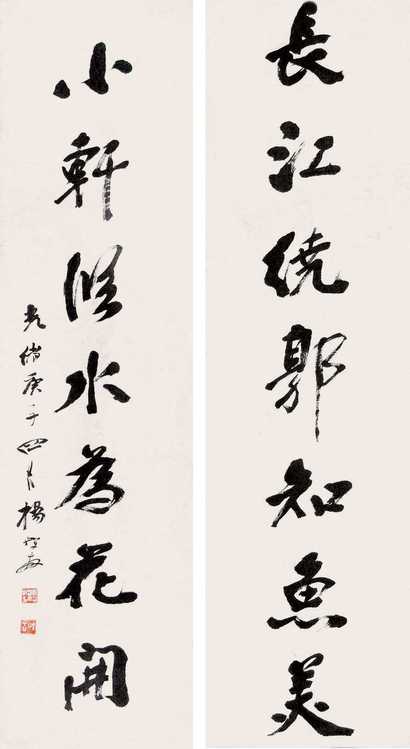 長江繞郭知魚美
小軒臨水為花開
光緒庚子四月楊守敬